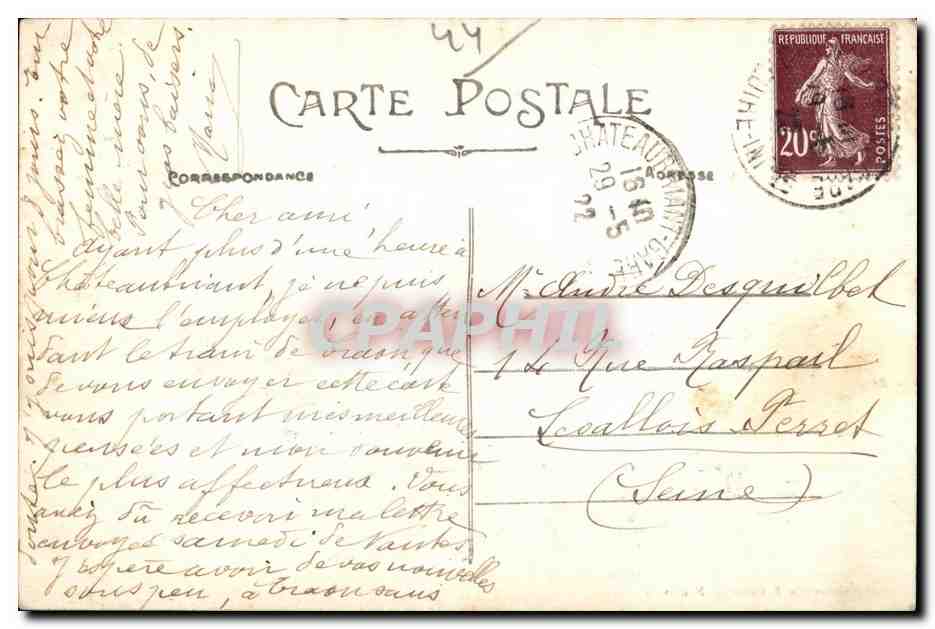 44
CARTE POSTALE
CORRESPONDANCE
ADRESSE
REPUBLIQUE FRANÇAISE
20c
POSTES
CHATEAUBRIANT-GARE
16 40
29 - 5
22
Cher ami
Ayant plus d'une heure à
Chateaubriant, je ne puis
mieux l'employer, en atten
dant le train de Craon que
de vous envoyer cette carte
vous portant mes meilleures
pensées et mon souvenir
le plus affectueux. Vous
avez dû recevoir ma lettre
envoyée samedi de Nantes
J'espère avoir de vos nouvelles
sous peu, à Craon sans
douter. J'y suis pour 2 jours. Em
brassez votre
bonne mère
Pour vous, de
gros baisers.
Marie
Mr André Desquilbet
14 Rue Raspail
Levallois Perret
(Seine)
CPAPHIL